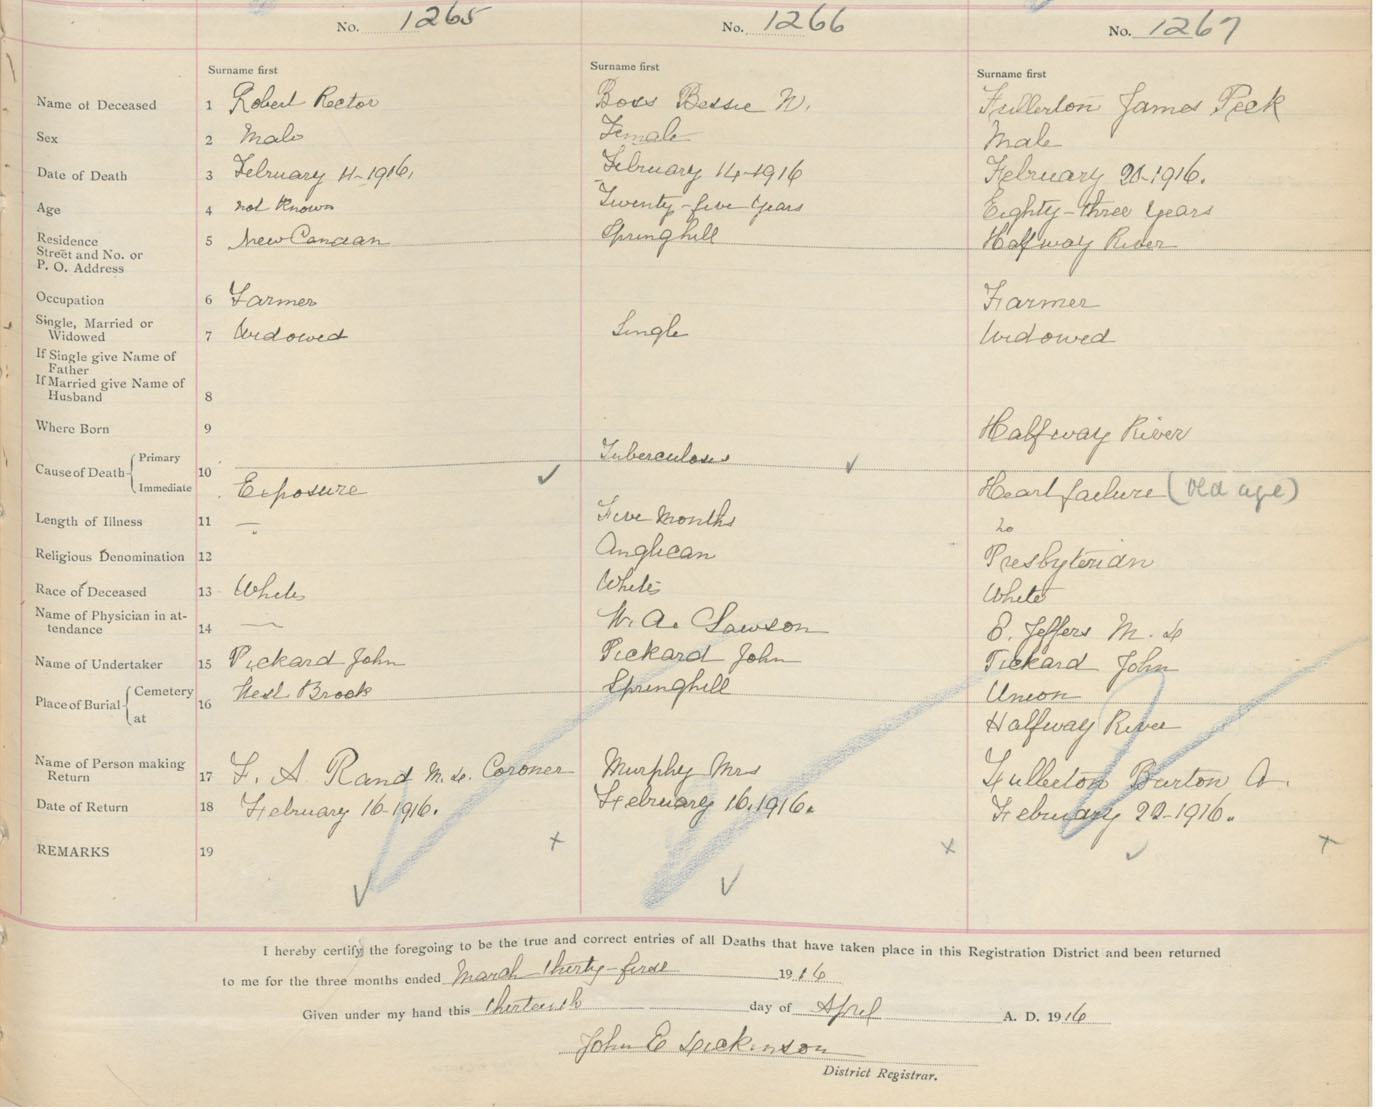 No. 1265 No. 1266 No. 1267
Surname first Surname first Surname first
Name of Deceased 1 Robert Rector Boss Bessie W. Fullerton James Peck
Sex 2 Male Female Male
Date of Death 3 February 11-1916. February 14-1916 February 20-1916.
Age 4 not Known Twenty-five Years Eighty-three Years
Residence 5 New Canaan Springhill Halfway River
Street and No. or
P. O. Address
Occupation 6 Farmer Farmer
Single, Married or
Widowed 7 Widowed Single Widowed
If Single give Name of
Father
If Married give Name of
Husband 8
Where Born 9 Halfway River
Cause of Death Primary 10 Tuberculosis
Immediate Exposure Heart failure (Old age)
Length of Illness 11 — Five Months
Religious Denomination 12 Anglican Presbyterian
Race of Deceased 13 White White White
Name of Physician in at-
tendance 14 — Lawson E. Jeffers M. D
Name of Undertaker 15 Pickard John Pickard John Pickard John
Place of Burial Cemetery 16 West Brook Springhill Union
at Halfway River
Name of Person making
Return 17 F. A. Rand M. D. Coroner Murphy Mrs Fullerton Burton A.
Date of Return 18 February 16-1916. February 16.1916. February 22-1916.
REMARKS 19
I hereby certify the foregoing to be the true and correct entries of all Deaths that have taken place in this Registration District and been returned
to me for the three months ended March thirty-first 1916
Given under my hand this thirteenth day of April A. D. 1916
John E Dickinson
District Registrar.